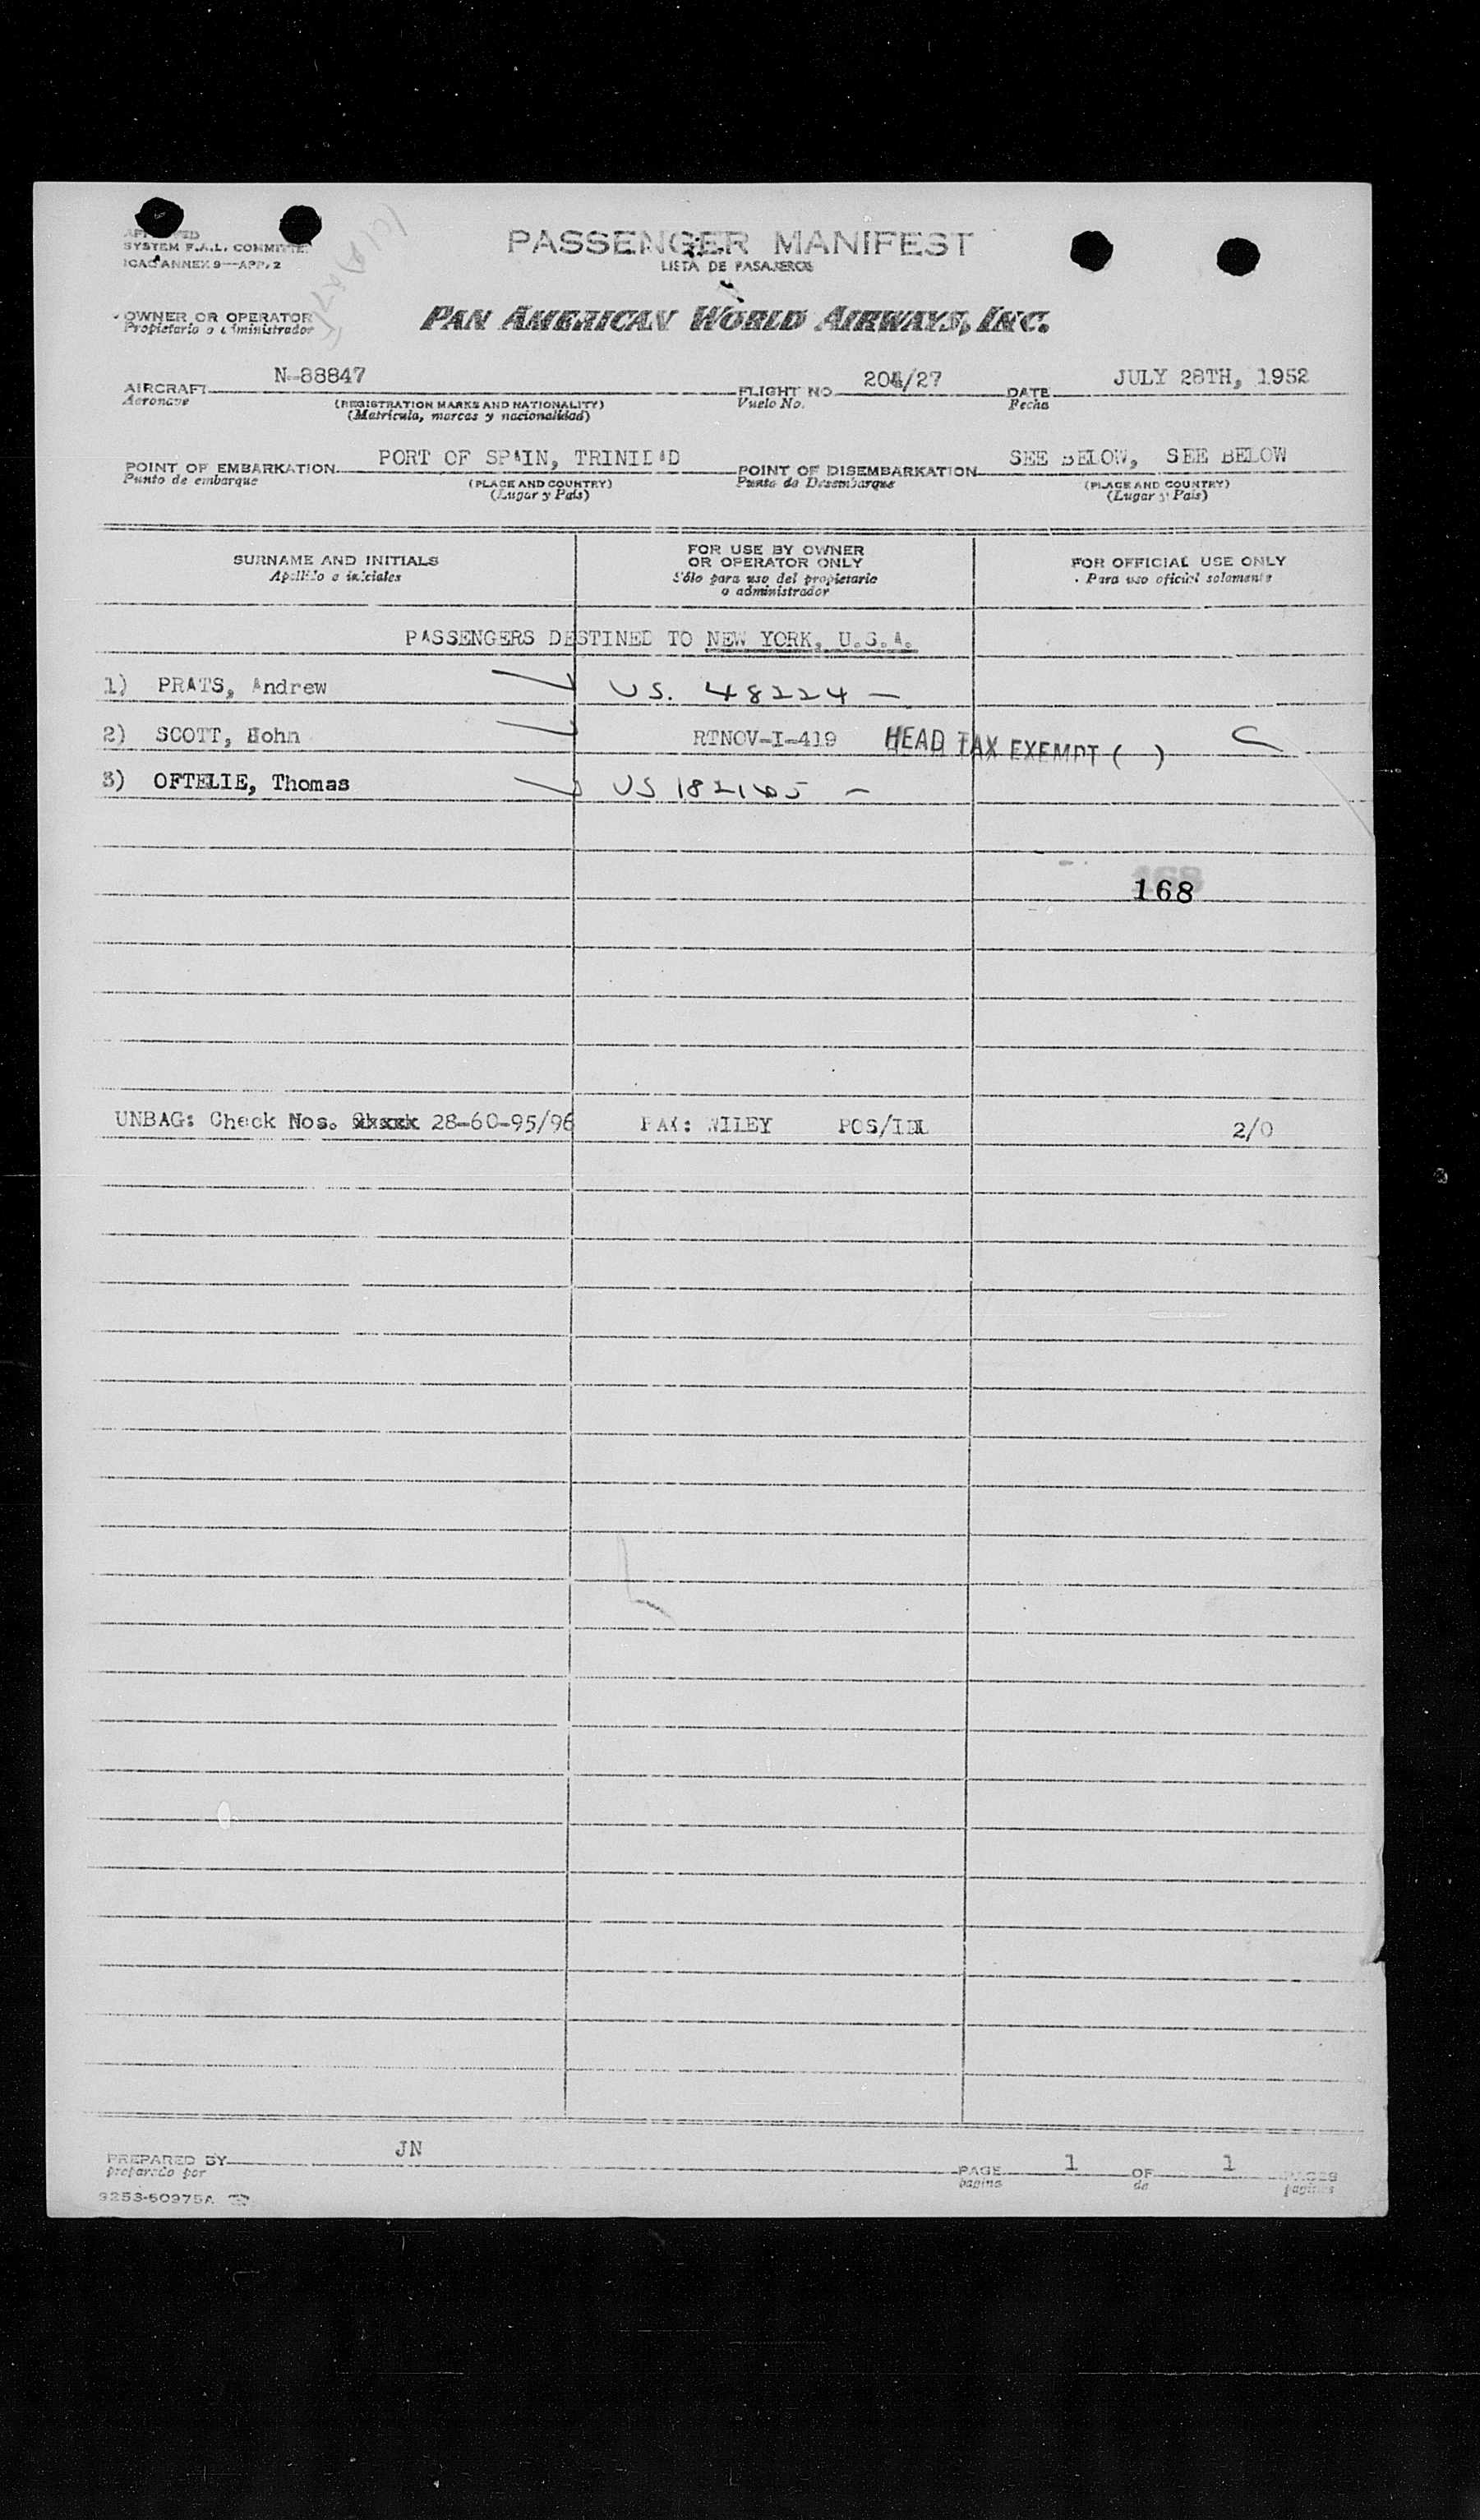 SYSTEM F.A.L. COMMITTEE
ICAO ANNEX 9—APP. 2
PASSENGER MANIFEST
LISTA DE PASAJEROS
OWNER OR OPERATOR
Propietario o administrador
PAN AMERICAN WORLD AIRWAYS, INC.
AIRCRAFT N-88847 FLIGHT NO. 204/27 DATE JULY 28TH, 1952
Aeronave (REGISTRATION MARKS AND NATIONALITY) Vuelo No. Fecha
(Matrícula, marcas y nacionalidad)
POINT OF EMBARKATION PORT OF SPAIN, TRINIDAD POINT OF DISEMBARKATION SEE BELOW, SEE BELOW
Punto de embarque (PLACE AND COUNTRY) Punto de Desembarque (PLACE AND COUNTRY)
(Lugar y País) (Lugar y País)
SURNAME AND INITIALS FOR USE BY OWNER OR OPERATOR ONLY FOR OFFICIAL USE ONLY
Apellido e iniciales Sólo para uso del propietario o administrador Para uso oficial solamente
PASSENGERS DESTINED TO NEW YORK, U.S.A.
1) PRATS, Andrew US. 48224 —
2) SCOTT, Hohn RTNOV-I-419 HEAD TAX EXEMPT ( )
3) OFTELIE, Thomas US 182165 —
168
UNBAG: Check Nos. 28-60-95/96 PAX: WILEY POS/IDL 2/0
PREPARED BY JN PAGE 1 OF 1 PAGES
preparado por pagina de paginas
9253-60975A